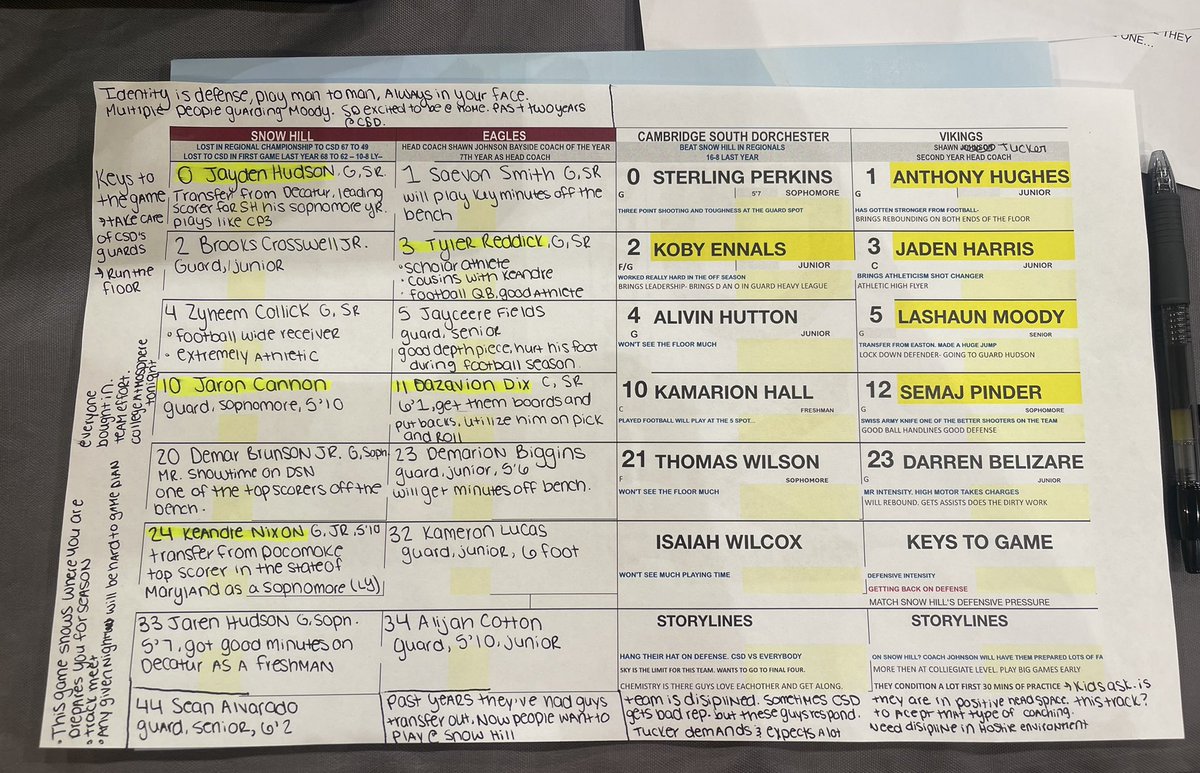 THEY
ONE...
Identity is defense, play man to man, ALWAYS in your face.
Multiple people guarding Moody. So excited to be @ HOME. Past two years
@ CSD.
SNOW HILL
LOST IN REGIONAL CHAMPIONSHIP TO CSD 67 TO 49
LOST TO CSD IN FIRST GAME LAST YEAR 68 TO 62 – 10-8 LY--
EAGLES
HEAD COACH SHAWN JOHNSON BAYSIDE COACH OF THE YEAR
7TH YEAR AS HEAD COACH
CAMBRIDGE SOUTH DORCHESTER
BEAT SNOW HILL IN REGIONALS
16-8 LAST YEAR
VIKINGS
SHAWN Tucker
SECOND YEAR HEAD COACH
Keys to
the game
→ TAKE CARE
OF CSD'S
GUARDS
→ Run the
floor
0 Jayden Hudson G, SR.
Transfer from Decatur, leading
scorer for SH his sophomore yr.
plays like CP3
1 Saevon Smith G, SR
will play key minutes off the
bench
0 STERLING PERKINS
G
5'7
SOPHOMORE
THREE POINT SHOOTING AND TOUGHNESS AT THE GUARD SPOT
1 ANTHONY HUGHES
G
JUNIOR
HAS GOTTEN STRONGER FROM FOOTBALL-
BRINGS REBOUNDING ON BOTH ENDS OF THE FLOOR
2 Brooks Crosswell JR.
Guard, junior
3 Tyler Reddick, G, SR
• scholar athlete
• cousins with Keandre
• football QB, good Athlete
2 KOBY ENNALS
F/G
JUNIOR
WORKED REALLY HARD IN THE OFF SEASON
BRINGS LEADERSHIP- BRINGS D AN O IN GUARD HEAVY LEAGUE
3 JADEN HARRIS
C
JUNIOR
BRINGS ATHLETICISM SHOT CHANGER
ATHLETIC HIGH FLYER
4 Zyneem Collick G, SR
• football wide receiver
• extremely Athletic
5 Jayceere Fields
guard, senior
good depth piece, hurt his foot
during football season.
4 ALIVIN HUTTON
G
JUNIOR
WON'T SEE THE FLOOR MUCH
5 LASHAUN MOODY
G
SENIOR
TRANSFER FROM EASTON. MADE A HUGE JUMP
LOCK DOWN DEFENDER- GOING TO GUARD HUDSON
10 Jaron Cannon
guard, sophomore, 5'10
11 Dazavion Dix C, SR
6'1, get them boards and
put backs. utilize him on pick
and roll
10 KAMARION HALL
C
FRESHMAN
PLAYED FOOTBALL WILL PLAY AT THE 5 SPOT...
12 SEMAJ PINDER
G
SOPHOMORE
SWISS ARMY KNIFE ONE OF THE BETTER SHOOTERS ON THE TEAM
GOOD BALL HANDLINES GOOD DEFENSE
20 Demar Brunson JR. G, Soph
MR. Showtime on DSN
one of the top scorers off the
bench.
23 Demarion Biggins
guard, junior, 5'6
will get minutes off bench.
21 THOMAS WILSON
F
SOPHOMORE
WON'T SEE THE FLOOR MUCH
23 DARREN BELIZARE
G
JUNIOR
MR INTENSITY. HIGH MOTOR TAKES CHARGES
WILL REBOUND. GETS ASSISTS DOES THE DIRTY WORK
24 Keandre Nixon G, JR, 5'10
transfer from pocomoke
top scorer in the state of
Maryland as a sophomore (LY)
32 Kameron Lucas
guard, junior, 6 foot
ISAIAH WILCOX
WON'T SEE MUCH PLAYING TIME
KEYS TO GAME
DEFENSIVE INTENSITY
GETTING BACK ON DEFENSE
MATCH SNOW HILL'S DEFENSIVE PRESSURE
33 Jaren Hudson G, Soph.
5'7, got good minutes on
Decatur AS A freshman
34 Alijah Cotton
guard, 5'10, junior
STORYLINES
HANG THEIR HAT ON DEFENSE. CSD VS EVERYBODY
SKY IS THE LIMIT FOR THIS TEAM. WANTS TO GO TO FINAL FOUR.
CHEMISTRY IS THERE GUYS LOVE EACHOTHER AND GET ALONG.
STORYLINES
ON SNOW HILL? COACH JOHNSON WILL HAVE THEM PREPARED LOTS OF FA
MORE THEN AT COLLEGIATE LEVEL. PLAY BIG GAMES EARLY
THEY CONDITION A LOT FIRST 30 MINS OF PRACTICE → Kids ask. is
this track?
44 Sean Alvarado
guard, senior, 6'2
Past years they've had guys
transfer out. Now people want to
play @ Snow Hill
team is disiplined. sometimes CSD
gets bad rep. but these guys respond.
Tucker demands & expects A lot
they are in positive head space.
to acept that type of coaching.
need disipline in Hostile environment
everyone
bought in.
team effort.
college atmosphere
tonight
• This game shows where you are
prepares you for season
• track meet
• Any given night will be hard to game plan